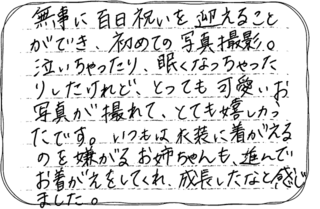 無事に百日祝いを迎えること
ができ、初めての写真撮影。
泣いちゃったり、眠くなっちゃった
りしたけれど、とっても可愛いお
写真が撮れて、とても嬉しかっ
たです。いつもは衣装に着がえる
のを嫌がるお姉ちゃんも、進んで
お着がえをしてくれ、成長したなと感じ
ました。